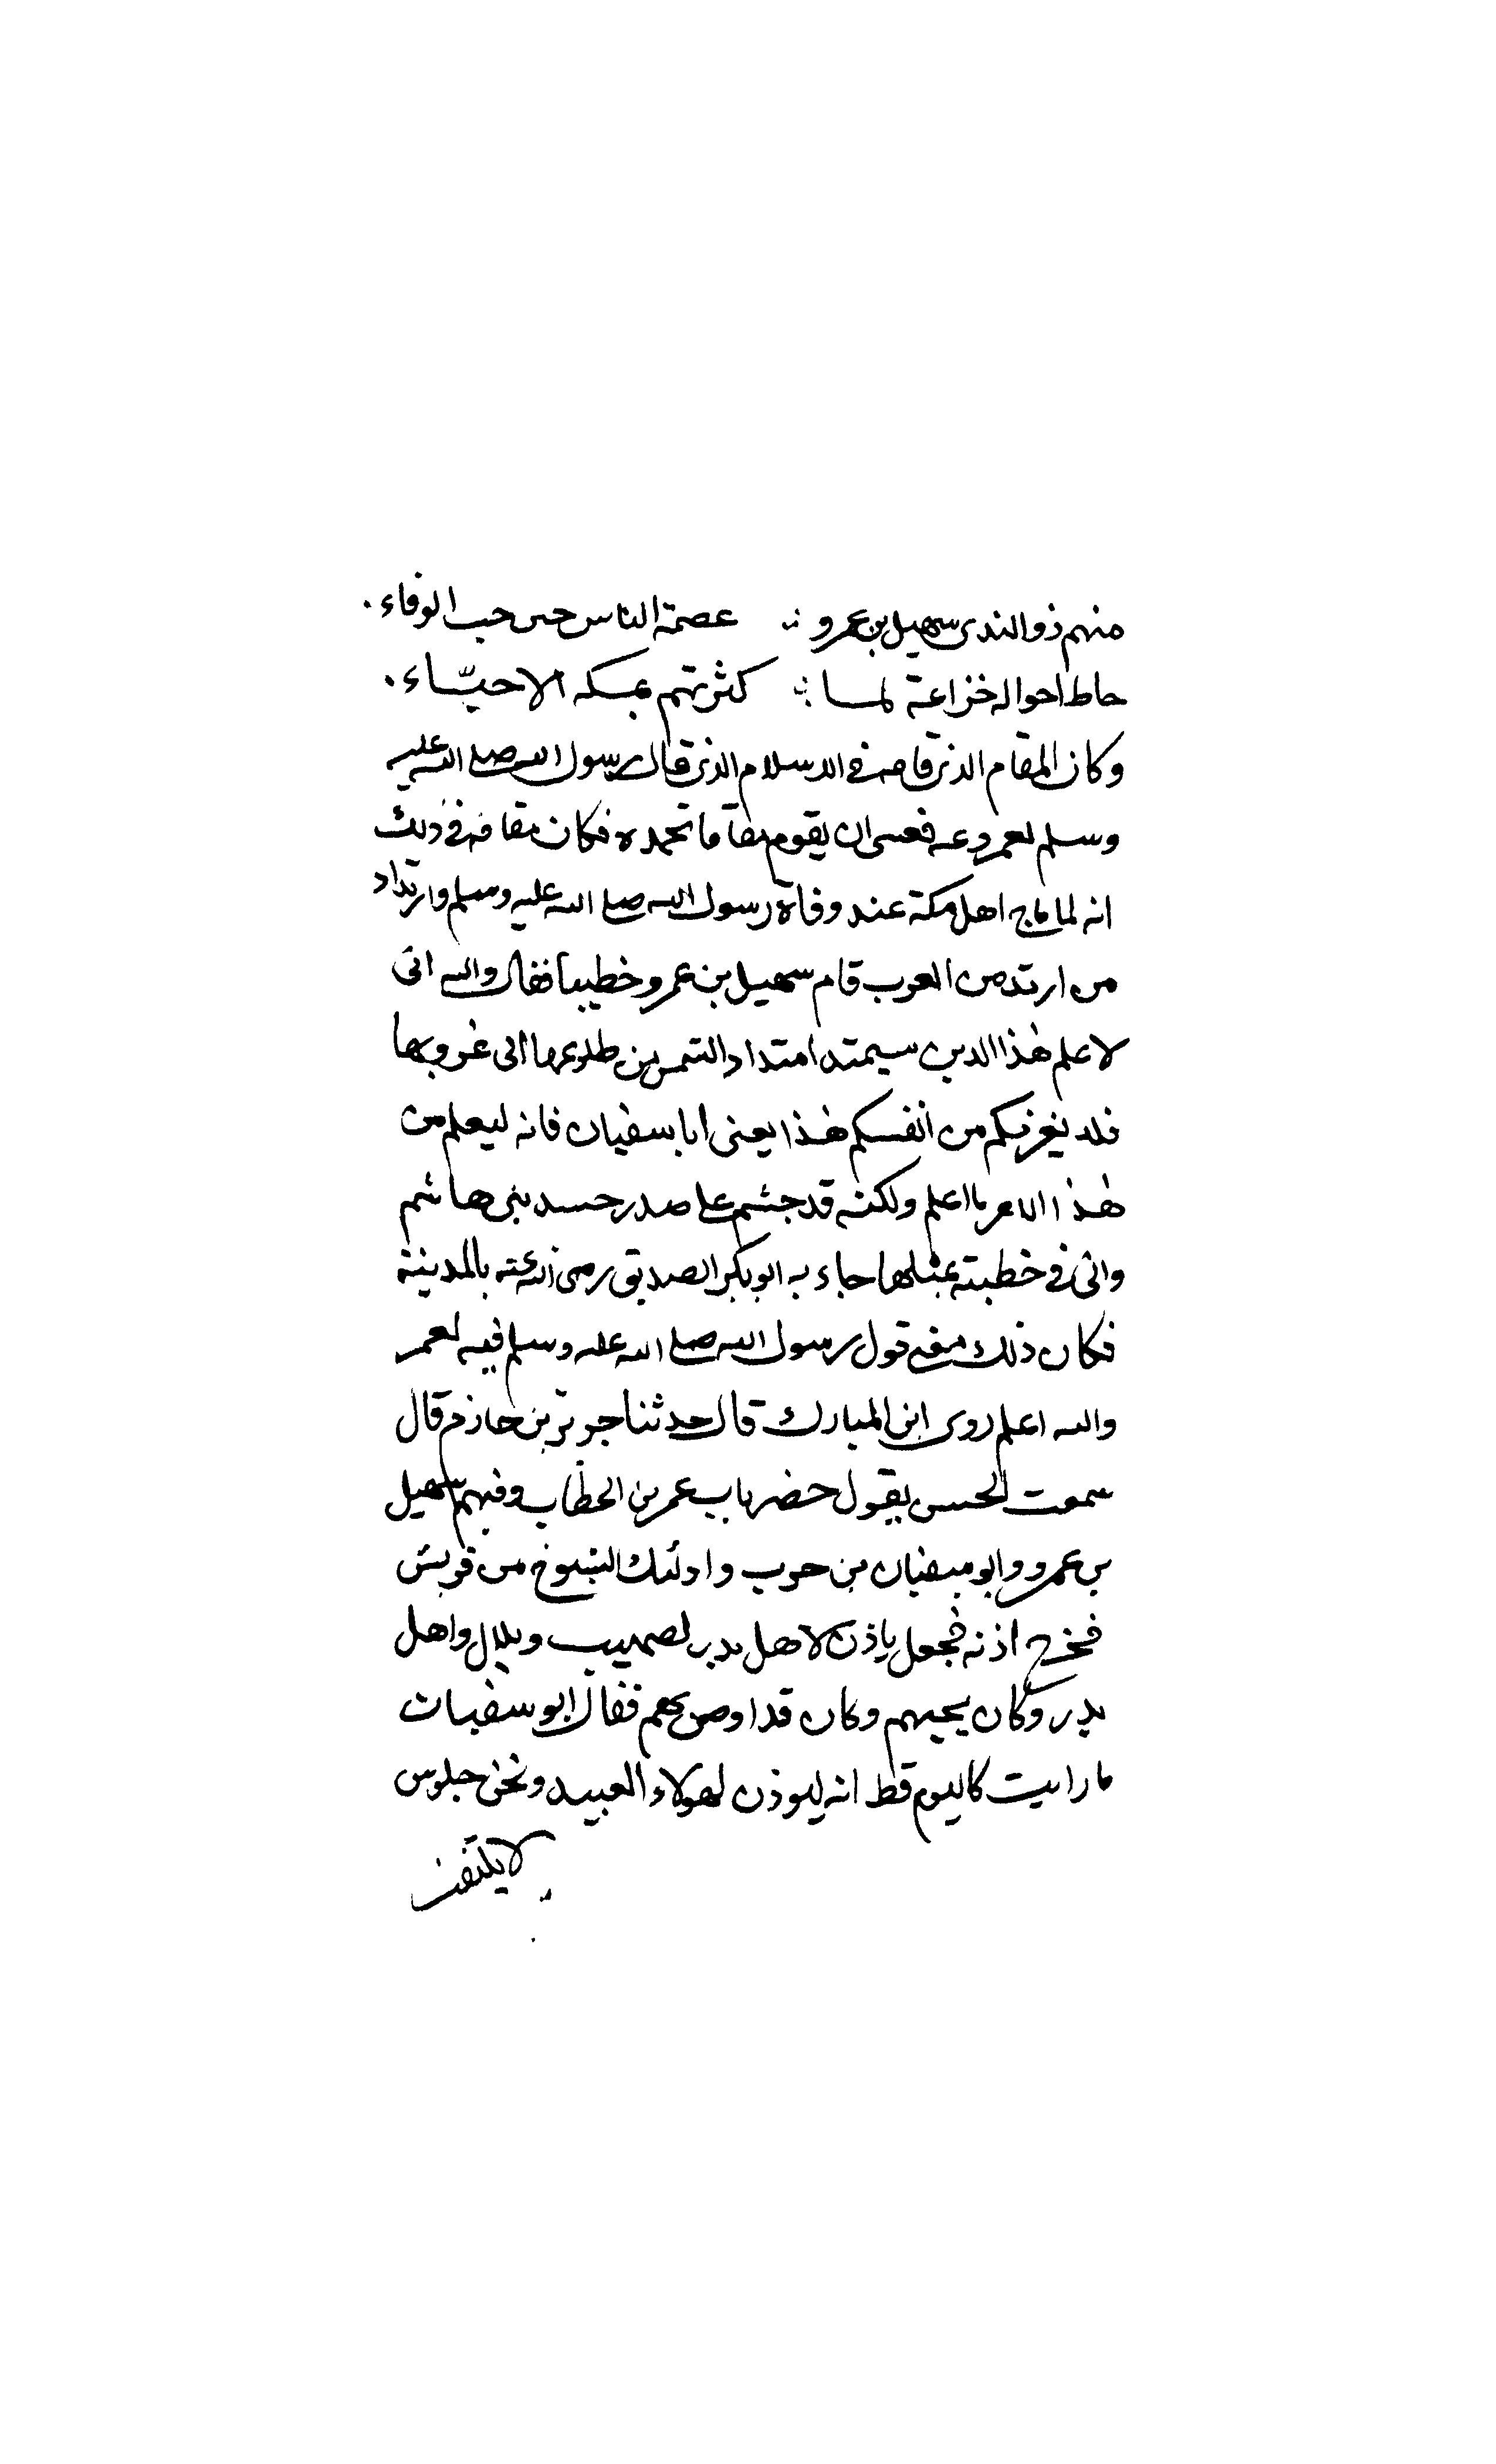 منهم ذو الندى سهيل بن عمرو ؞ عصمة الناس حين حب الوفاء .
حاط احواله خزاعة لما ؞ كثرتهم بمكه الاحيّاء .
وكان المقام الذى قامه فى الاسلام الذى قال رسول الله صلى الله عليه
وسلم لعمر دعه فعسى ان يقوم مقاما تحمده فكان مقامه فى ذلك
انه لما ماج اهل مكة عند وفاة رسول الله صلى الله عليه وسلم وارتداد
من ارتد من العرب قام سهيل بن عمرو خطيبا فقال والله انى
لاعلم هذا الدين سيمتد امتداد الشمس من طلوعها الى غروبها
فلا يغرنكم من انفسكم هذا يعنى ابا سفيان فانه ليعلم من
هذا الامر ما اعلم ولكنه قد جشم على صدر حسد بنى هاشم
واتى فى خطبته بمثلها جاء به ابو بكر الصديق رضى الله عنه بالمدينة
فكان ذلك معنى قول رسول الله صلى الله عليه وسلم فيه لعمر
والله اعلم روى ابن المبارك قال حدثنا جرير بن حازم قال
سمعت الحسن يقول حضر باب عمر بن الخطاب وفيهم سهيل
بن عمرو وابو سفيان بن حرب واولئك الشيوخ من قريش
فخرج اذنه فجعل ياذن لاهل بدر لصهيب وبلال واهل
بدر وكان يحبهم وكان قد اوصى بهم فقال ابو سفيان
ما رايت كاليوم قط انه ليوذن لهولاء العبيد ونحن جلوس
لا يلتفت